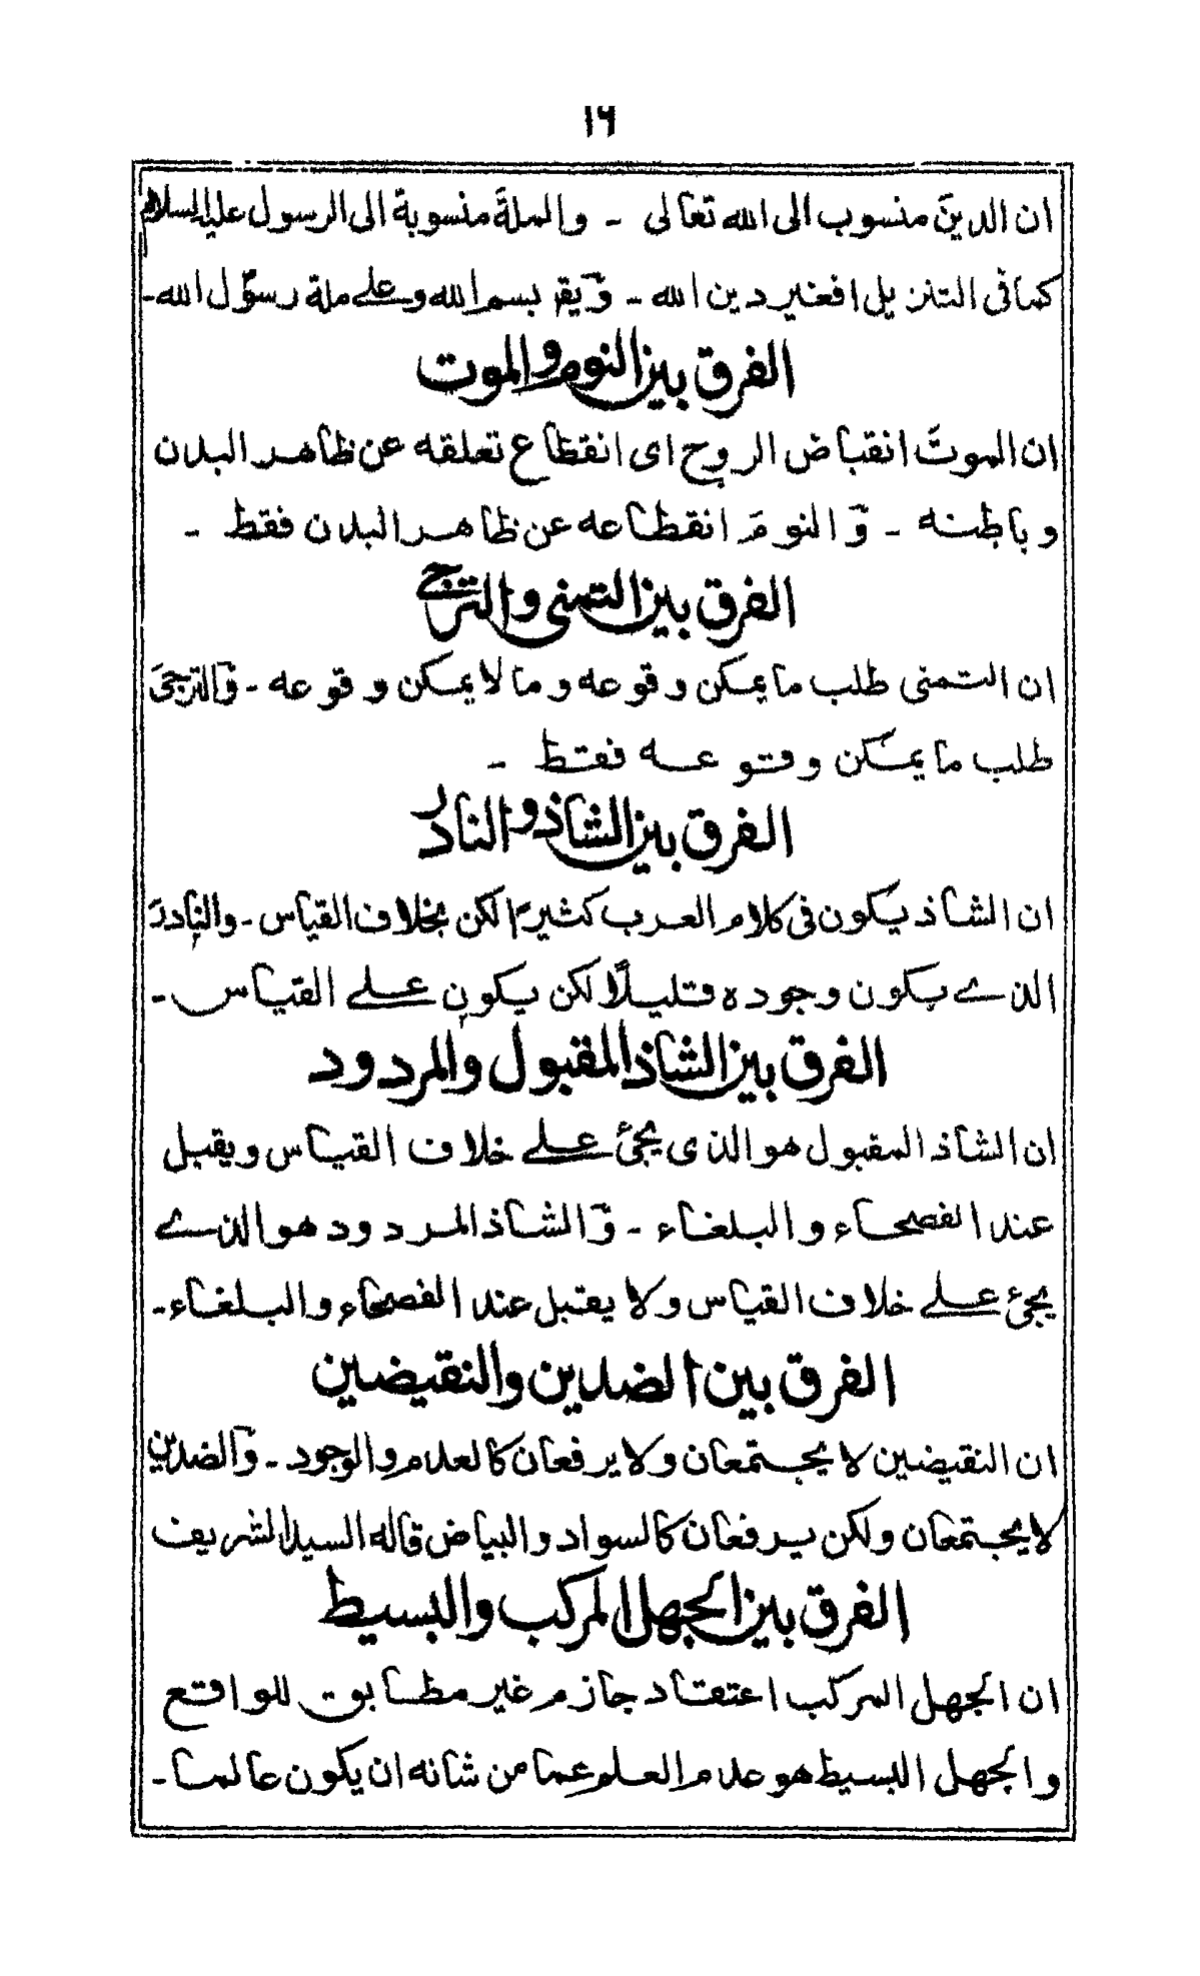 ١٦
ان الدينَ منسوب الى الله تعالى ـ والملةَ منسوبة الى الرسول عليه السلام
كما فى التنزيل افغير دين الله ـ وَيقر بسم الله وعلے ملة رسول الله ـ
الفرق بين النوم والموت
ان الموتَ انقباض الروح اى انقطاع تعلقه عن ظاهر البدن
وباطنه ـ وَالنومَ انقطاعه عن ظاهر البدن فقط ـ
الفرق بين التمنى والترجے
ان التمنى طلب ما يمكن وقوعه وما لا يمكن وقوعه ـ وَالترجىَ
طلب ما يمكن وقوعه فقط ـ
الفرق بين الشاذ والنادر
ان الشاذ يكون فى كلام العرب كثيرًا لكن بخلاف القياس ـ والنادرَ
الذے يكون وجوده قليلًا لكن يكون علے القياس ـ
الفرق بين الشاذ المقبول والمردود
ان الشاذ المقبول هو الذى يجئ علے خلاف القياس ويقبل
عند الفصحاء والبلغاء ـ وَالشاذ المردود هو الذے
يجئ علے خلاف القياس ولا يقبل عند الفصحاء والبلغاء ـ
الفرق بين الضدين والنقيضين
ان النقيضين لا يجتمعان ولا يرفعان كالعدم والوجود ـ وَالضدين
لا يجتمعان ولكن يرفعان كالسواد والبياض قاله السيد الشريف
الفرق بين الجهل المركب والبسيط
ان الجهل المركب اعتقاد جازم غير مطابق للواقع
والجهل البسيط هو عدم العلم عما من شانه ان يكون عالما ـ